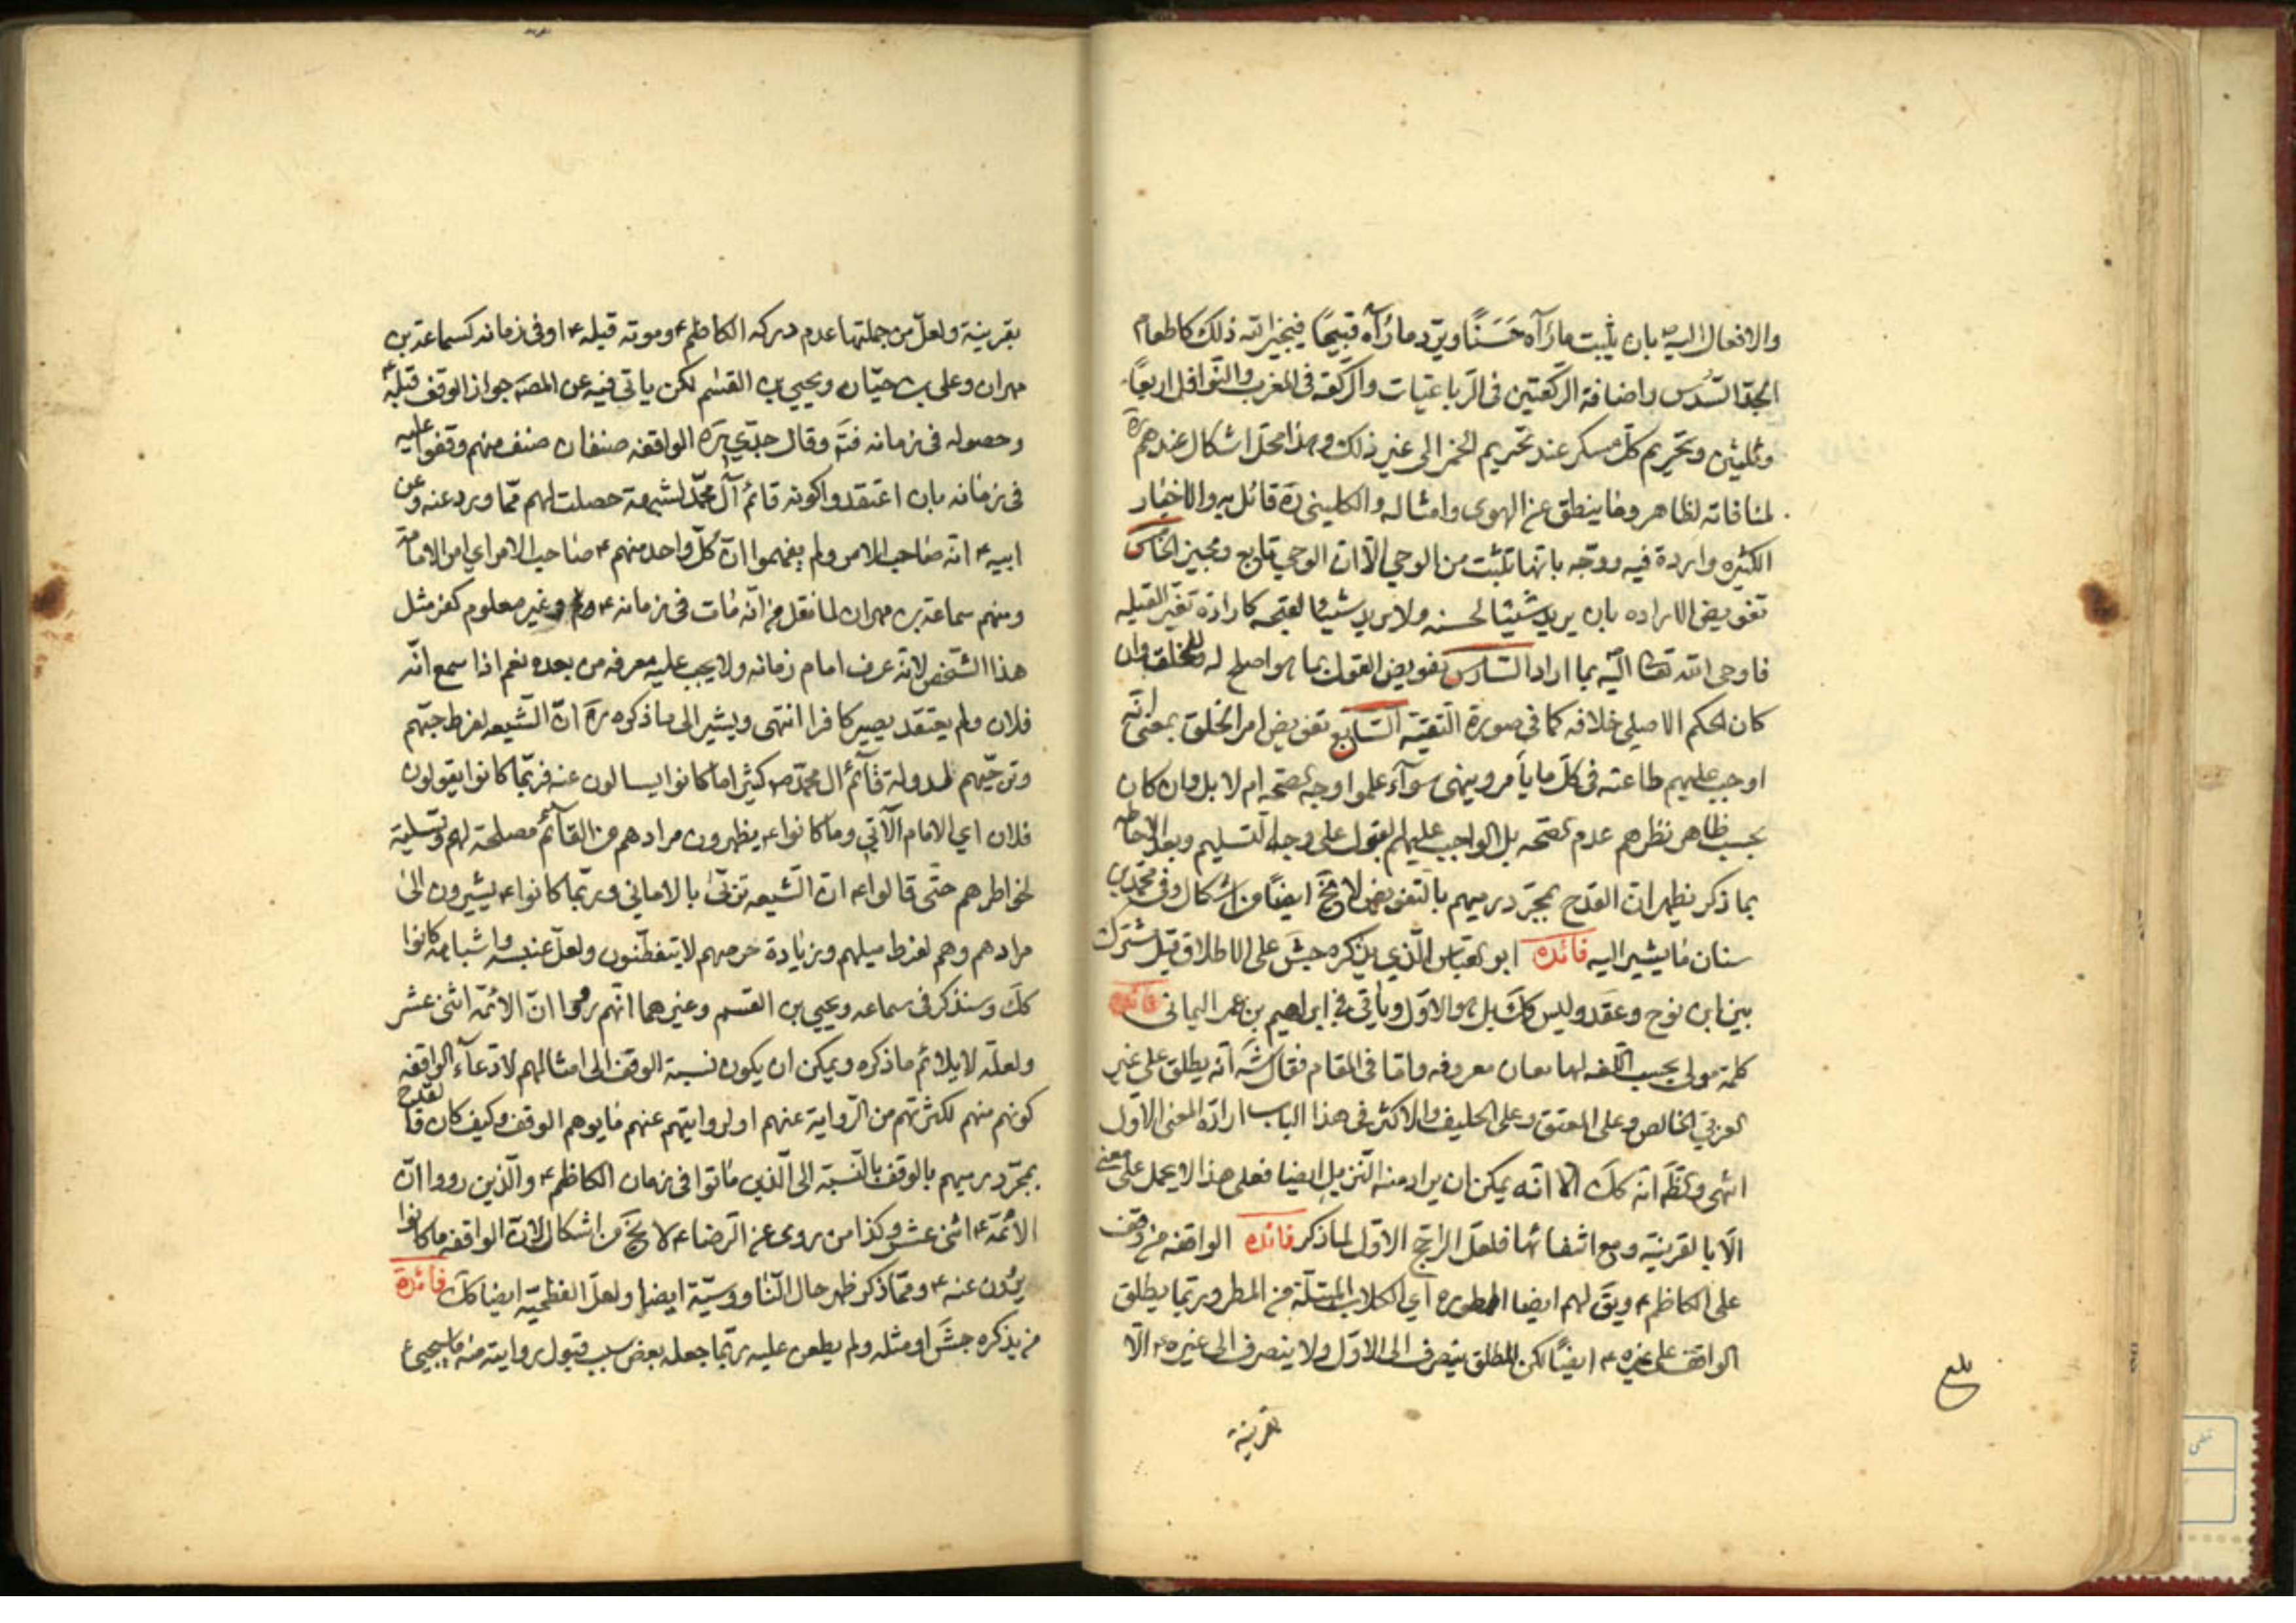 والافعال اليه ص بان يثبت ما رآه حَسَنًا ويردّ ما رآه قبيحًا فيجيز الله ذلك كاطعام
الجدّ السّدس واضافة الركعتين في الرباعيات والركعة في المغرب والنّوافل اربعًا
وثلثين وتحريم كلّ مسكر عند تحريم الخمر الى غير ذلك وهذا محلّ اشكال عندهم ره
لمنافاته لظاهر وما ينطق عن الهوى وامثاله والكليني ره قائل به والاخبار
الكثيره واردة فيه ووجّه بانها تثبت من الوحي الّا ان الوحي تابع ومجيز الخامس
تفويض الاراده بان يريد شيئا لحسنه ولا يريد شيئا لقبحه كارادة تغيّر القبله
فاوحى الله تعالى اليه بما اراد السّادس تفويض القول بما هو اصلح له وللخلق وان
كان الحكم الاصلي خلافه كما في صورة التقيّة السّابع تفويض امر الخلق بمعنى انّه
اوجب عليهم طاعته في كلّ ما يأمر وينهى سوآء علموا وجه الصّحه ام لا بل وان كان
بحسب ظاهر نظرهم عدم الصّحه بل الواجب عليهم القبول على وجه التّسليم وبعد الاحاطه
بما ذكر يظهر انّ القدح بمجرّد رميهم بالتفويض لا يخ ايضًا من اشكال وفي محمّد بن
سنان ما يشير اليه فائده ابو العباس الّذي يذكره جش على الاطلاق قيل مشترك
بين ابن نوح وعقد وليس كك بل هو الاوّل ويأتي في ابراهيم بن عمر اليماني فائده
كلمة مولى بحسب اللّغه لها معان معروفه وامّا في المقام فقال شه انّه يطلق على غير
العربي الخالص وعلى المعتق وعلى الحليف والاكثر في هذا الباب ارادة المعنى الاوّل
انتهى والظّ انه كك الّا انّه يمكن ان يراد منه النّزيل ايضا فعلى هذا لا يحمل على معنى
الّا بالقرينة ومع انتفائها فلعلّ الراجح الاوّل لما ذكر فائده الواقفه من وقف
على الكاظم ع ويق لهم ايضا الممطوره اي الكلاب المبتلّة من المطر وربّما يطلق
الواقف على غيره ع ايضًا لكن المطلق ينصرف الى الاوّل ولا ينصرف الى غيره ع الّا
بقرينة
بلغ
بقرينة ولعلّ من جملتها عدم دركه الكاظم ع وموته قبله ع او في زمانه كسماعة بن
مهران وعلي بن حيّان ويحيى بن القسم لكن ياتي فيه عن المصه جواز الوقف قبله ع
وحصوله في زمانه فتم وقال جدّي ره الواقفه صنفان صنف منهم وقفوا عليه
في زمانه بان اعتقدوا كونه قائم آل محمّد لشبهة حصلت لهم ممّا ورد عنه وعن
ابيه ع انّه صاحب الامر ولم يفهموا انّ كلّ واحد منهم ع صاحب الامر اي امر الامامة
ومنهم سماعة بن مهران لما نقل من انّه مات في زمانه ع وغير معلوم كفر مثل
هذا الشّخص لانّه عرف امام زمانه ولا يجب عليه معرفه من بعده نعم اذا سمع انّه
فلان ولم يعتقد يصير كافرا انتهى ويشير الى ما ذكره ره انّ الشّيعه لفرط حبّهم
وترجّيهم لدولة قآئم ال محمّد ص كثيرا ما كانوا يسالون عنه فربّما كانوا يقولون
فلان اي الامام الآتي وما كانوا ع يظهرون مرادهم من القآئم مصلحة لهم وتسلية
لخواطرهم حتّى قالوا ع انّ الشّيعه تربّى بالاماني وربّما كانوا ع يشيرون الى
مرادهم وهم لفرط ميلهم وزيادة حرصهم لا يتفطّنون ولعلّ عنبسه واشباهه كانوا
كك وسنذكر في سماعه ويحيى بن القسم وغيرهما انّهم رووا انّ الائمّة اثنى عشر
ولعلّه لا يلائم ما ذكره ويمكن ان يكون نسبة الوقف الى امثالهم لادّعآء الواقفه
كونهم منهم لكثرتهم من الرّواية عنهم او لروايتهم عنهم ما يوهم الوقف وكيف كان فالقدح
بمجرّد رميهم بالوقف بالنّسبة الى الّذين ماتوا في زمان الكاظم ع والّذين رووا انّ
الائمّة ع اثنى عشر وكذا من روى عن الرّضا ع لا يخ من اشكال لانّ الواقفه ما كانوا
يروون عنه ع وممّا ذكر ظهر حال النّاووسيّة ايضا ولعلّ الفطحيّه ايضا كك فائدة
من يذكره جش او مثله ولم يطعن عليه ربّما جعله بعض سبب قبول روايته منه ما سيجيئ